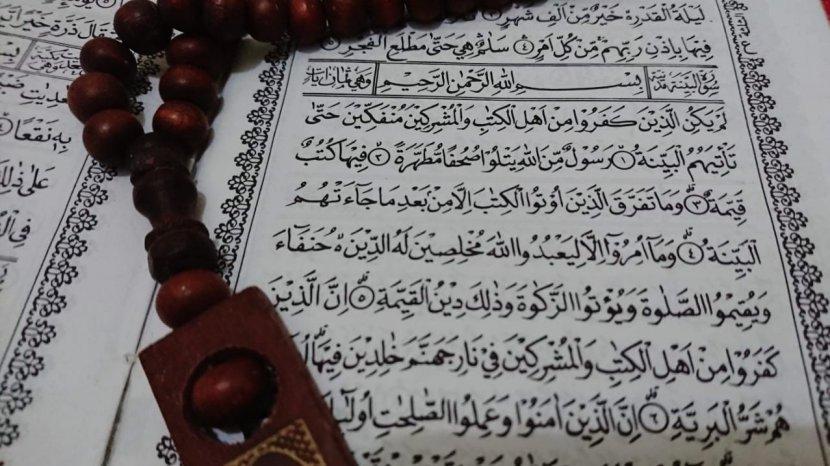 لَيْلَةُ الْقَدْرِ ەۙ خَيْرٌ مِّنْ اَلْفِ شَهْرٍ
فِيْهَا بِاِذْنِ رَبِّهِمْ مِّنْ كُلِّ اَمْرٍ ۛ ٤ سَلٰمٌ ۛ هِيَ حَتّٰى مَطْلَعِ الْفَجْرِ
سُوْرَةُ الْبَيِّنَةِ مَدَنِيَّةٌ بِسْمِ اللّٰهِ الرَّحْمٰنِ الرَّحِيْمِ وَهِيَ ثَمَانُ اٰيَاتٍ
لَمْ يَكُنِ الَّذِيْنَ كَفَرُوْا مِنْ اَهْلِ الْكِتٰبِ وَالْمُشْرِكِيْنَ مُنْفَكِّيْنَ حَتّٰى
تَأْتِيَهُمُ الْبَيِّنَةُ ۙ ١ رَسُوْلٌ مِّنَ اللّٰهِ يَتْلُوْا صُحُفًا مُّطَهَّرَةً ۙ ٢ فِيْهَا كُتُبٌ
قَيِّمَةٌ ۗ ٣ وَمَا تَفَرَّقَ الَّذِيْنَ اُوْتُوا الْكِتٰبَ اِلَّا مِنْ بَعْدِ مَا جَاۤءَتْهُمُ
الْبَيِّنَةُ ۗ ٤ وَمَآ اُمِرُوْٓا اِلَّا لِيَعْبُدُوا اللّٰهَ مُخْلِصِيْنَ لَهُ الدِّيْنَ ەۙ حُنَفَاۤءَ
وَيُقِيْمُوا الصَّلٰوةَ وَيُؤْتُوا الزَّكٰوةَ وَذٰلِكَ دِيْنُ الْقَيِّمَةِ ۗ ٥ اِنَّ الَّذِيْنَ
كَفَرُوْا مِنْ اَهْلِ الْكِتٰبِ وَالْمُشْرِكِيْنَ فِيْ نَارِ جَهَنَّمَ خٰلِدِيْنَ فِيْهَا ۗ
هُمْ شَرُّ الْبَرِيَّةِ ۗ ٦ اِنَّ الَّذِيْنَ اٰمَنُوْا وَعَمِلُوا الصّٰلِحٰتِ اُولٰۤىِٕكَ
بِهٖ نَقْعًا
عَلٰى ذٰلِكَ